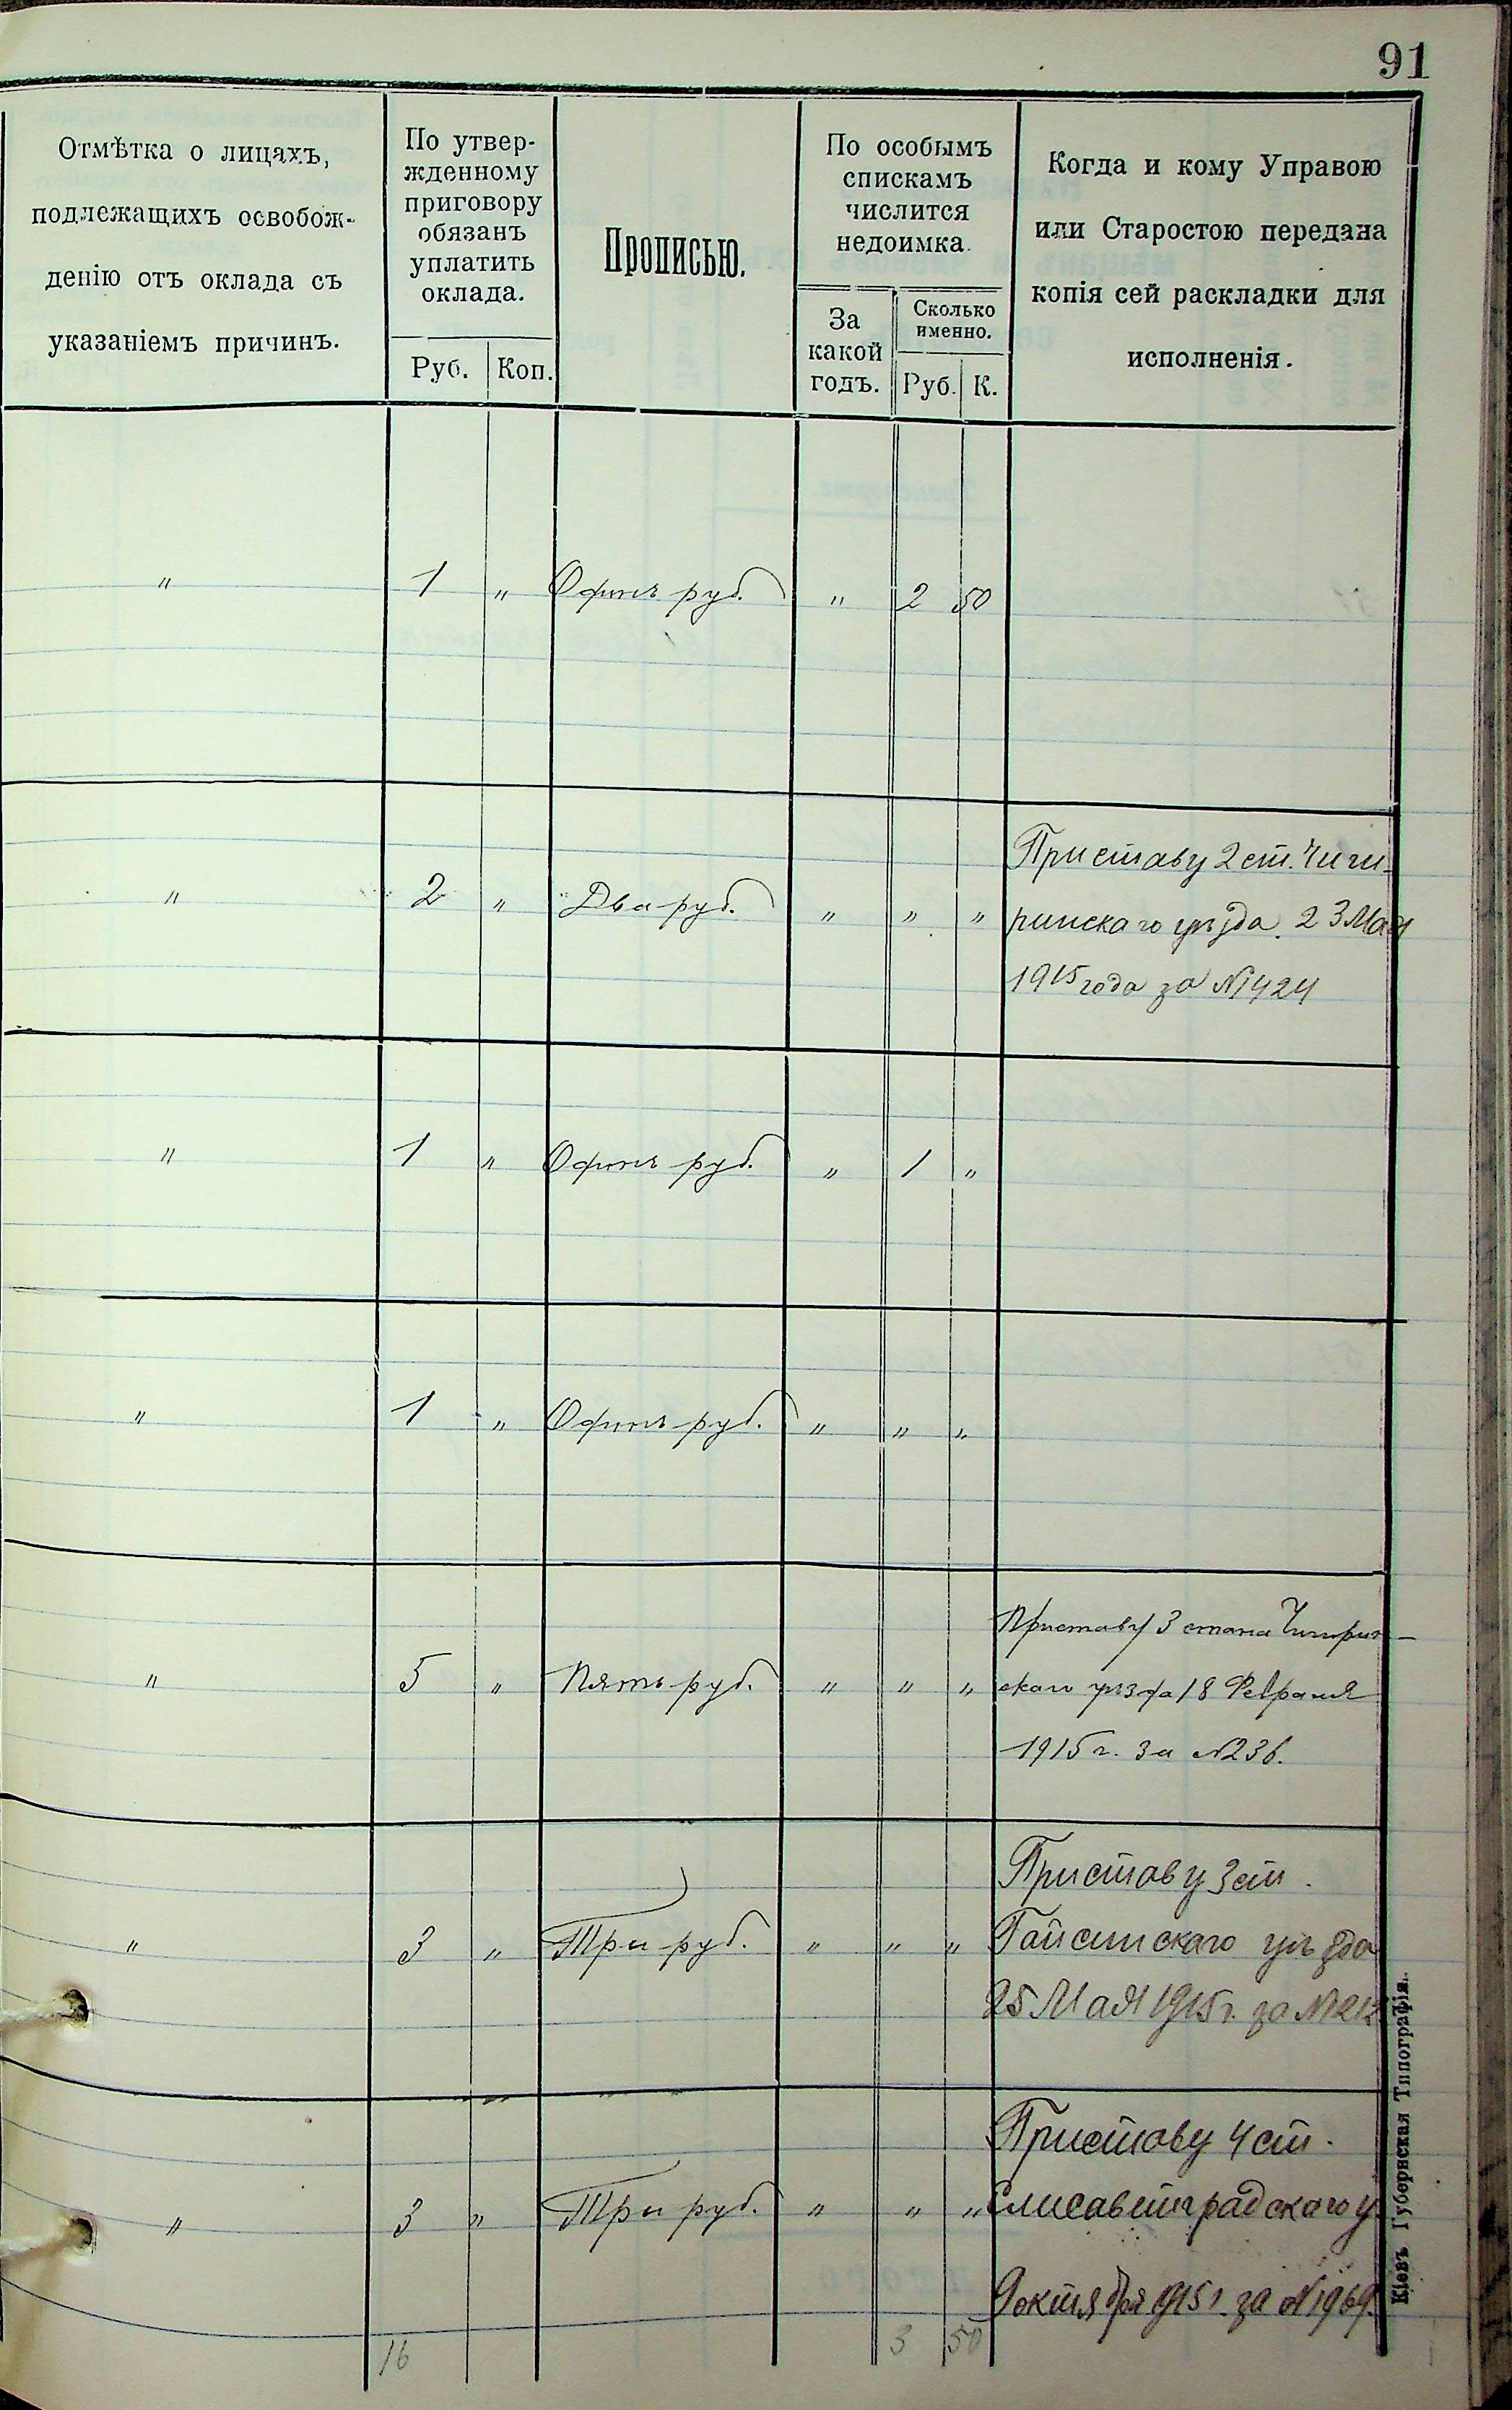 91
Отмѣтка о лицахъ,
подлежащихъ освобож-
денію отъ оклада съ
указаніемъ причинъ.
По утвер-
жденному
приговору
обязанъ
уплатить
оклада.
Руб. Коп.
Прописью.
По особымъ
спискамъ
числится
недоимка.
За
какой
годъ.
Сколько
именно.
Руб. К.
Когда и кому Управою
или Старостою передана
копія сей раскладки для
исполненія.
" 1 " Одинъ руб. " 2 50
Приставу 2 ст. Чиги-
" 2 " Два руб. " " " ринскаго уѣзда. 23 Мая
1915 года за №1424
" 1 " Одинъ руб. " 1 "
" 1 " Одинъ руб. " " "
Приставу 3 стана Чигирин-
" 5 " Пять руб. " " " скаго уѣзда 18 Февраля
1915 г. за №236.
Приставу 3 ст.
" 3 " Три руб. " " " Гайсинскаго уѣзда
25 Мая 1915 г. за
Приставу 4 ст.
" 3 " Три руб. " " " Елисаветградскаго у.
9 октября 1915 г. за №1969.
16 3 50
Кіевъ Губернская Типографія.